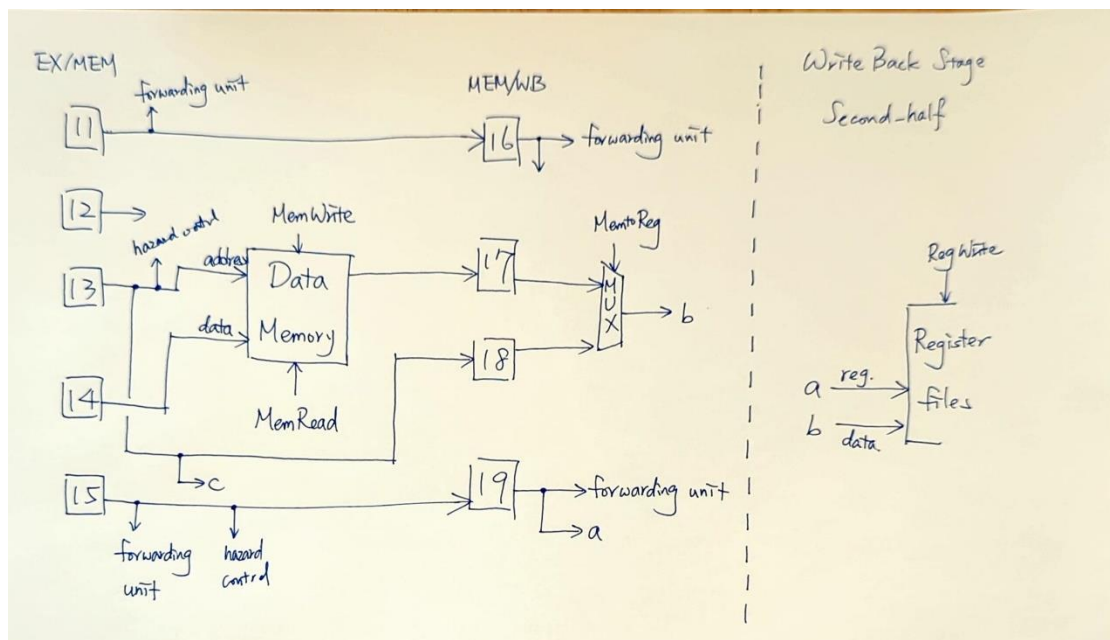 EX/MEM
forwarding unit
MEM/WB
Write Back Stage
Second-half
11
16
forwarding unit
12
hazard control
MemWrite
MemtoReg
address
13
Data
Memory
17
MUX
b
RegWrite
data
18
Register
files
14
MemRead
a
reg.
b
data
c
15
19
forwarding unit
a
forwarding
unit
hazard
control